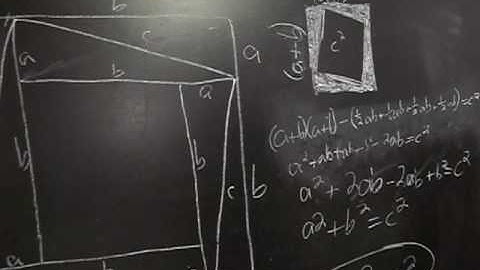 b
a
c
a
b
a
b
b
c
b
a
b
(a+b)
c²
(a+b)(a+b)-(½ab+½ab+½ab+½ab)=c²
a²+ab+ab+b²-2ab=c²
a²+2ab-2ab+b²=c²
a2+b²=c²